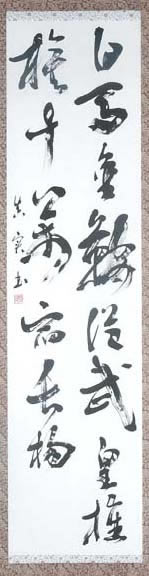 白馬金鞍從武皇旌
旗十萬宿長楊